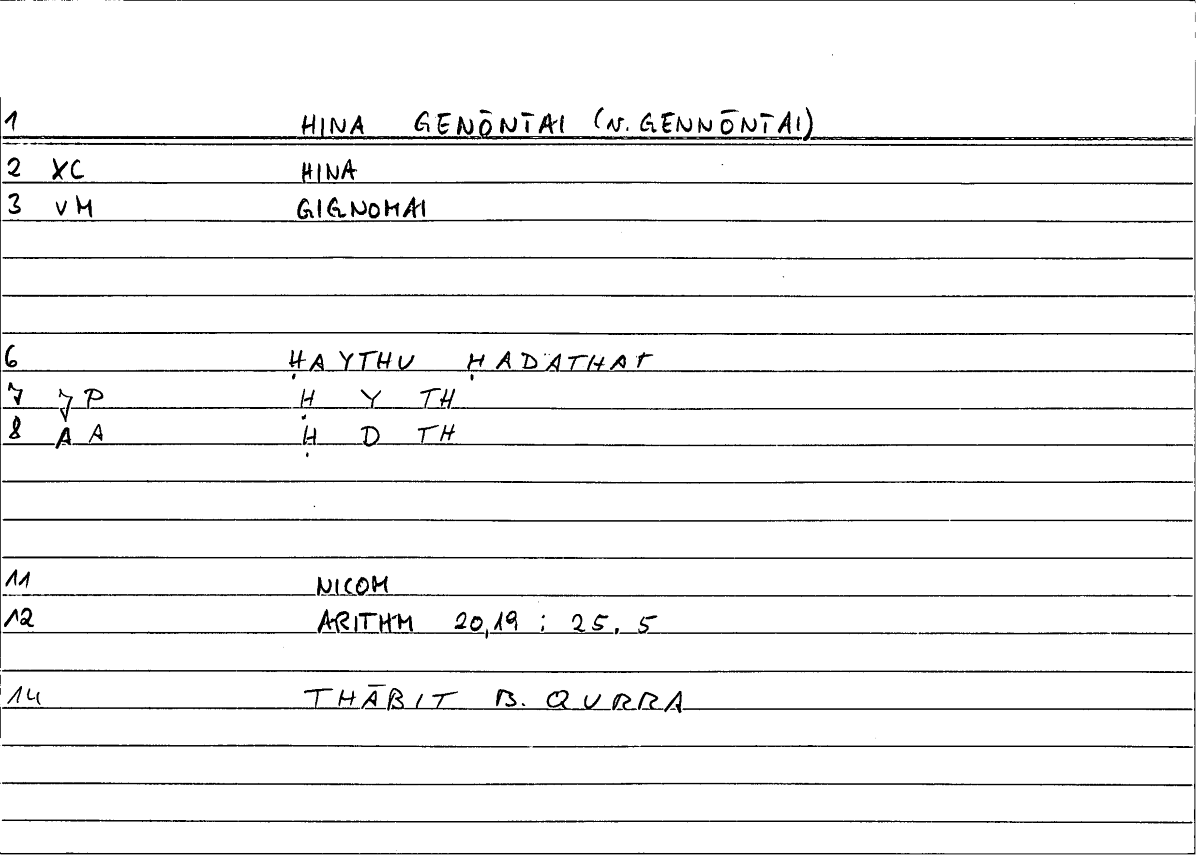 1 HINA GENŌNTAI (v. GENNŌNTAI)
2 XC HINA
3 VM GIGNOMAI
6 ḤAYTHU ḤADATHAT
7 P Ḥ Y TH
8 A A Ḥ D TH
11 NICOM
12 ARITHM 20,19 ; 25, 5
14 THĀBIT B. QURRA